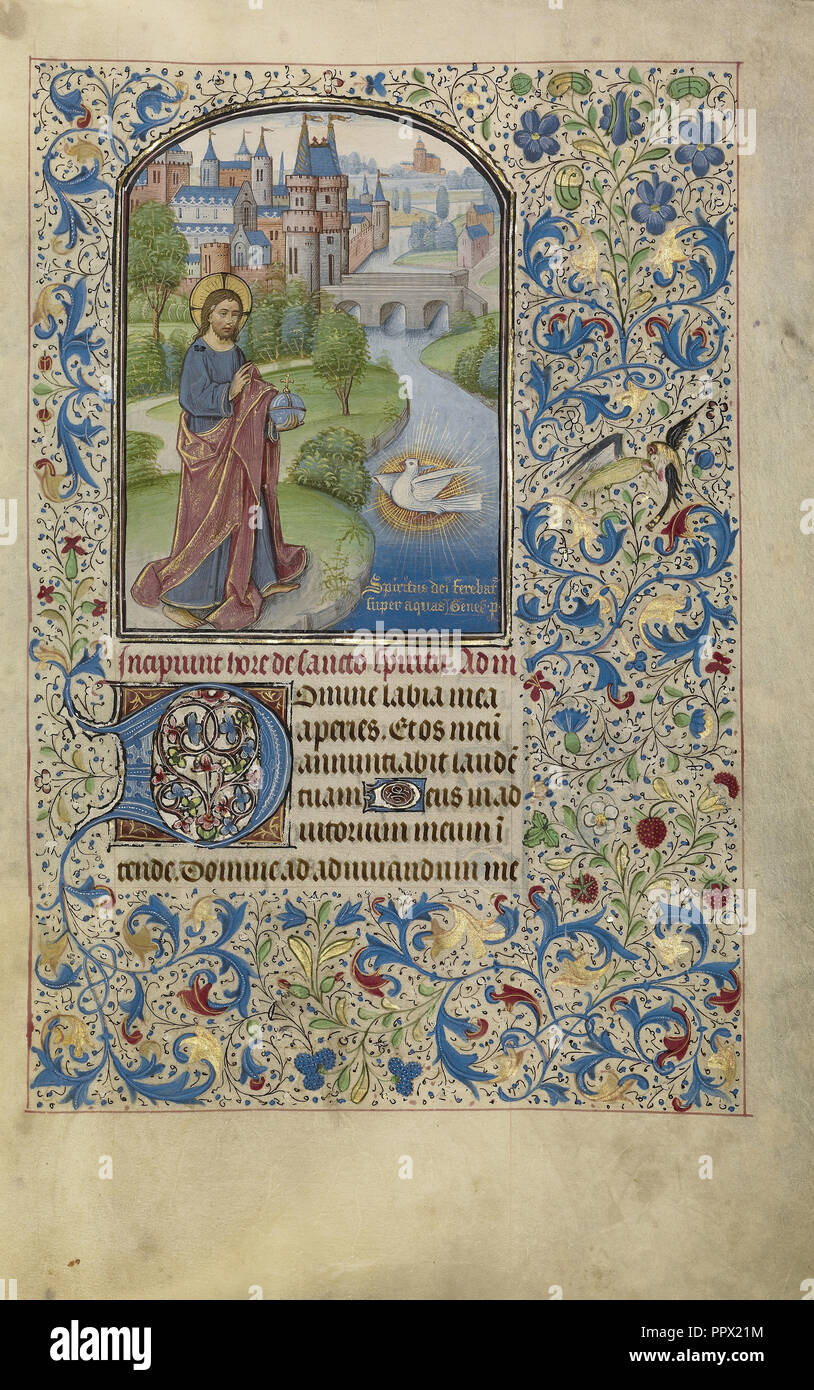 Spiritus dei ferebat᷑
super aquas Genes̄ p̄
Incipiunt hore de sancto spiritu. Ad m̄
Domine labia mea
aperies. Et os meū
annunciabit laudē
tuam Deus in ad
iutorium meum ī
tende. Domine ad adiuuandum me
a
alamy
Image ID: PPX21M
www.alamy.com